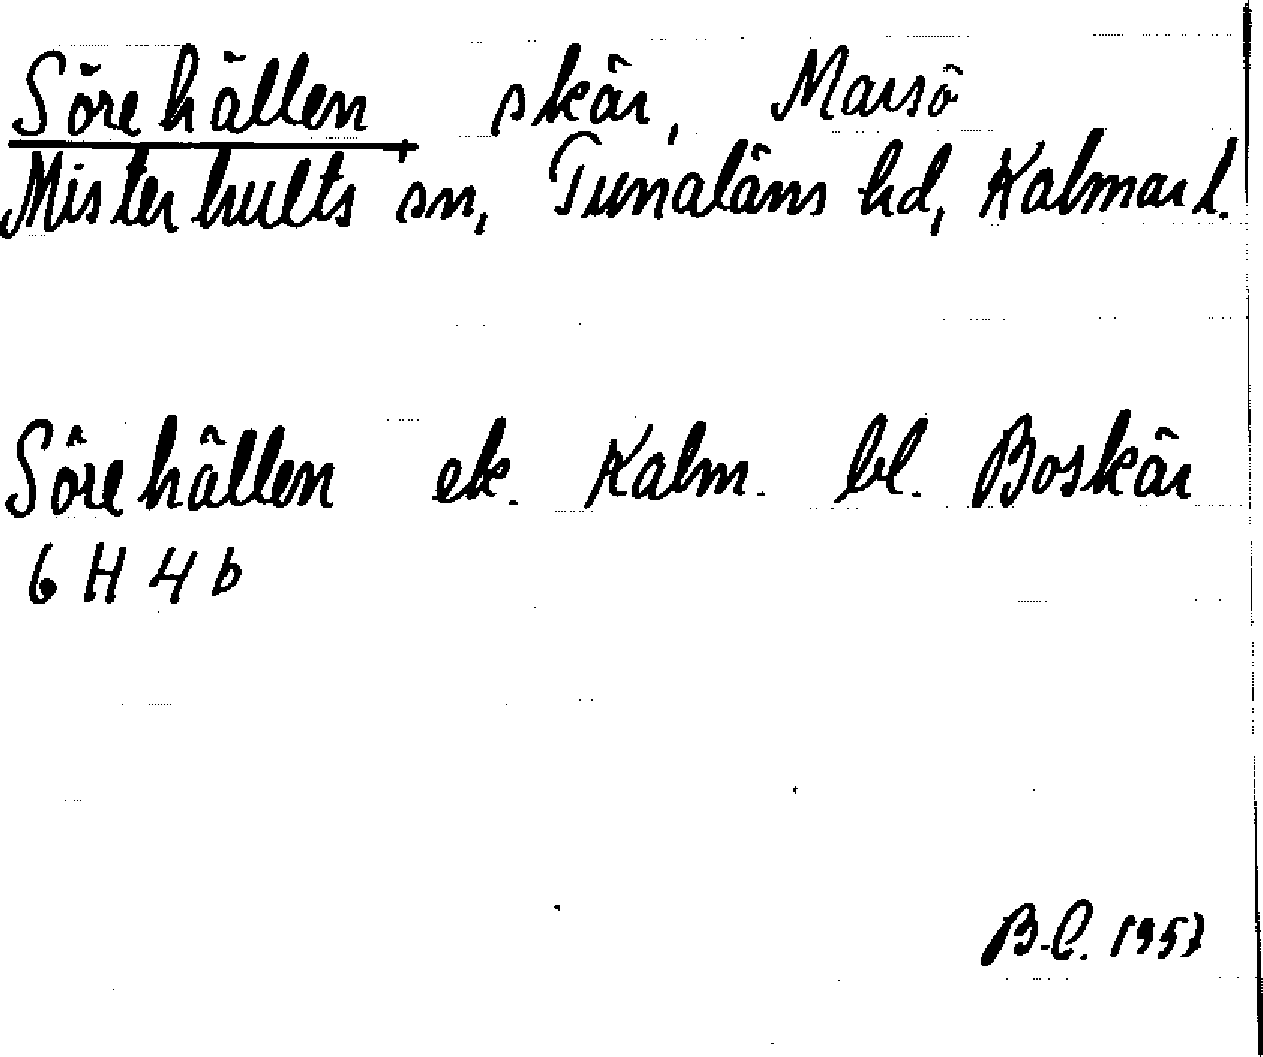 Sörehällen skär, Marsö
Misterhults sn, Tunaläns hd, Kalmar l.
Sörehällen ek. Kalm. bl. Boskär
6 H 4 b
B.C. 1957